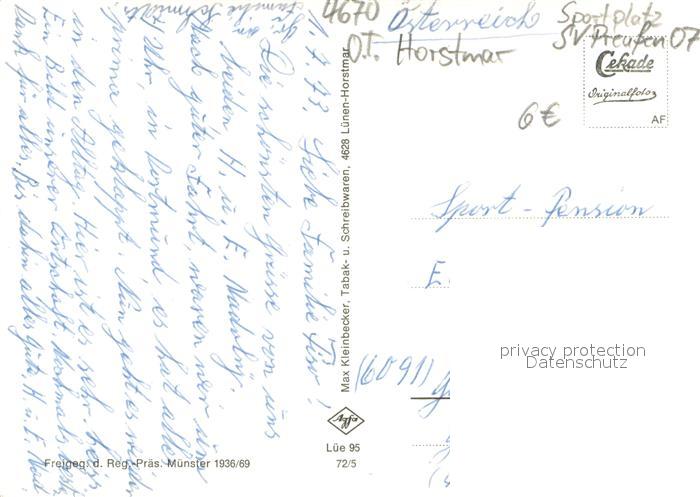 1.7.73. Liebe Familie
Die schönsten Grüsse von uns
beiden H. u. E.
Nach guter Fahrt, waren wir um
Uhr, in Dortmund es hat alles
prima geklappt. Nun geht es wieder
in den Alltag. Hier ist es sehr heiss
Ein Bild unserer Ortschaft. Nochmals herzl.
Dank für alles. Bis dahin alles gute H. u. E.
Familie Schmidt
Max Kleinbecker, Tabak- u. Schreibwaren, 4628 Lünen-Horstmar
Agfa
Lüe 95
72/5
Freigeg. d. Reg.-Präs. Münster 1936/69
4670
Österreich
Sportplatz
SV Preußen 07
O.T. Horstmar
Cekade
Originalfoto
AF
6 €
Sport - Pension
E.
(6091)
privacy protection
Datenschutz